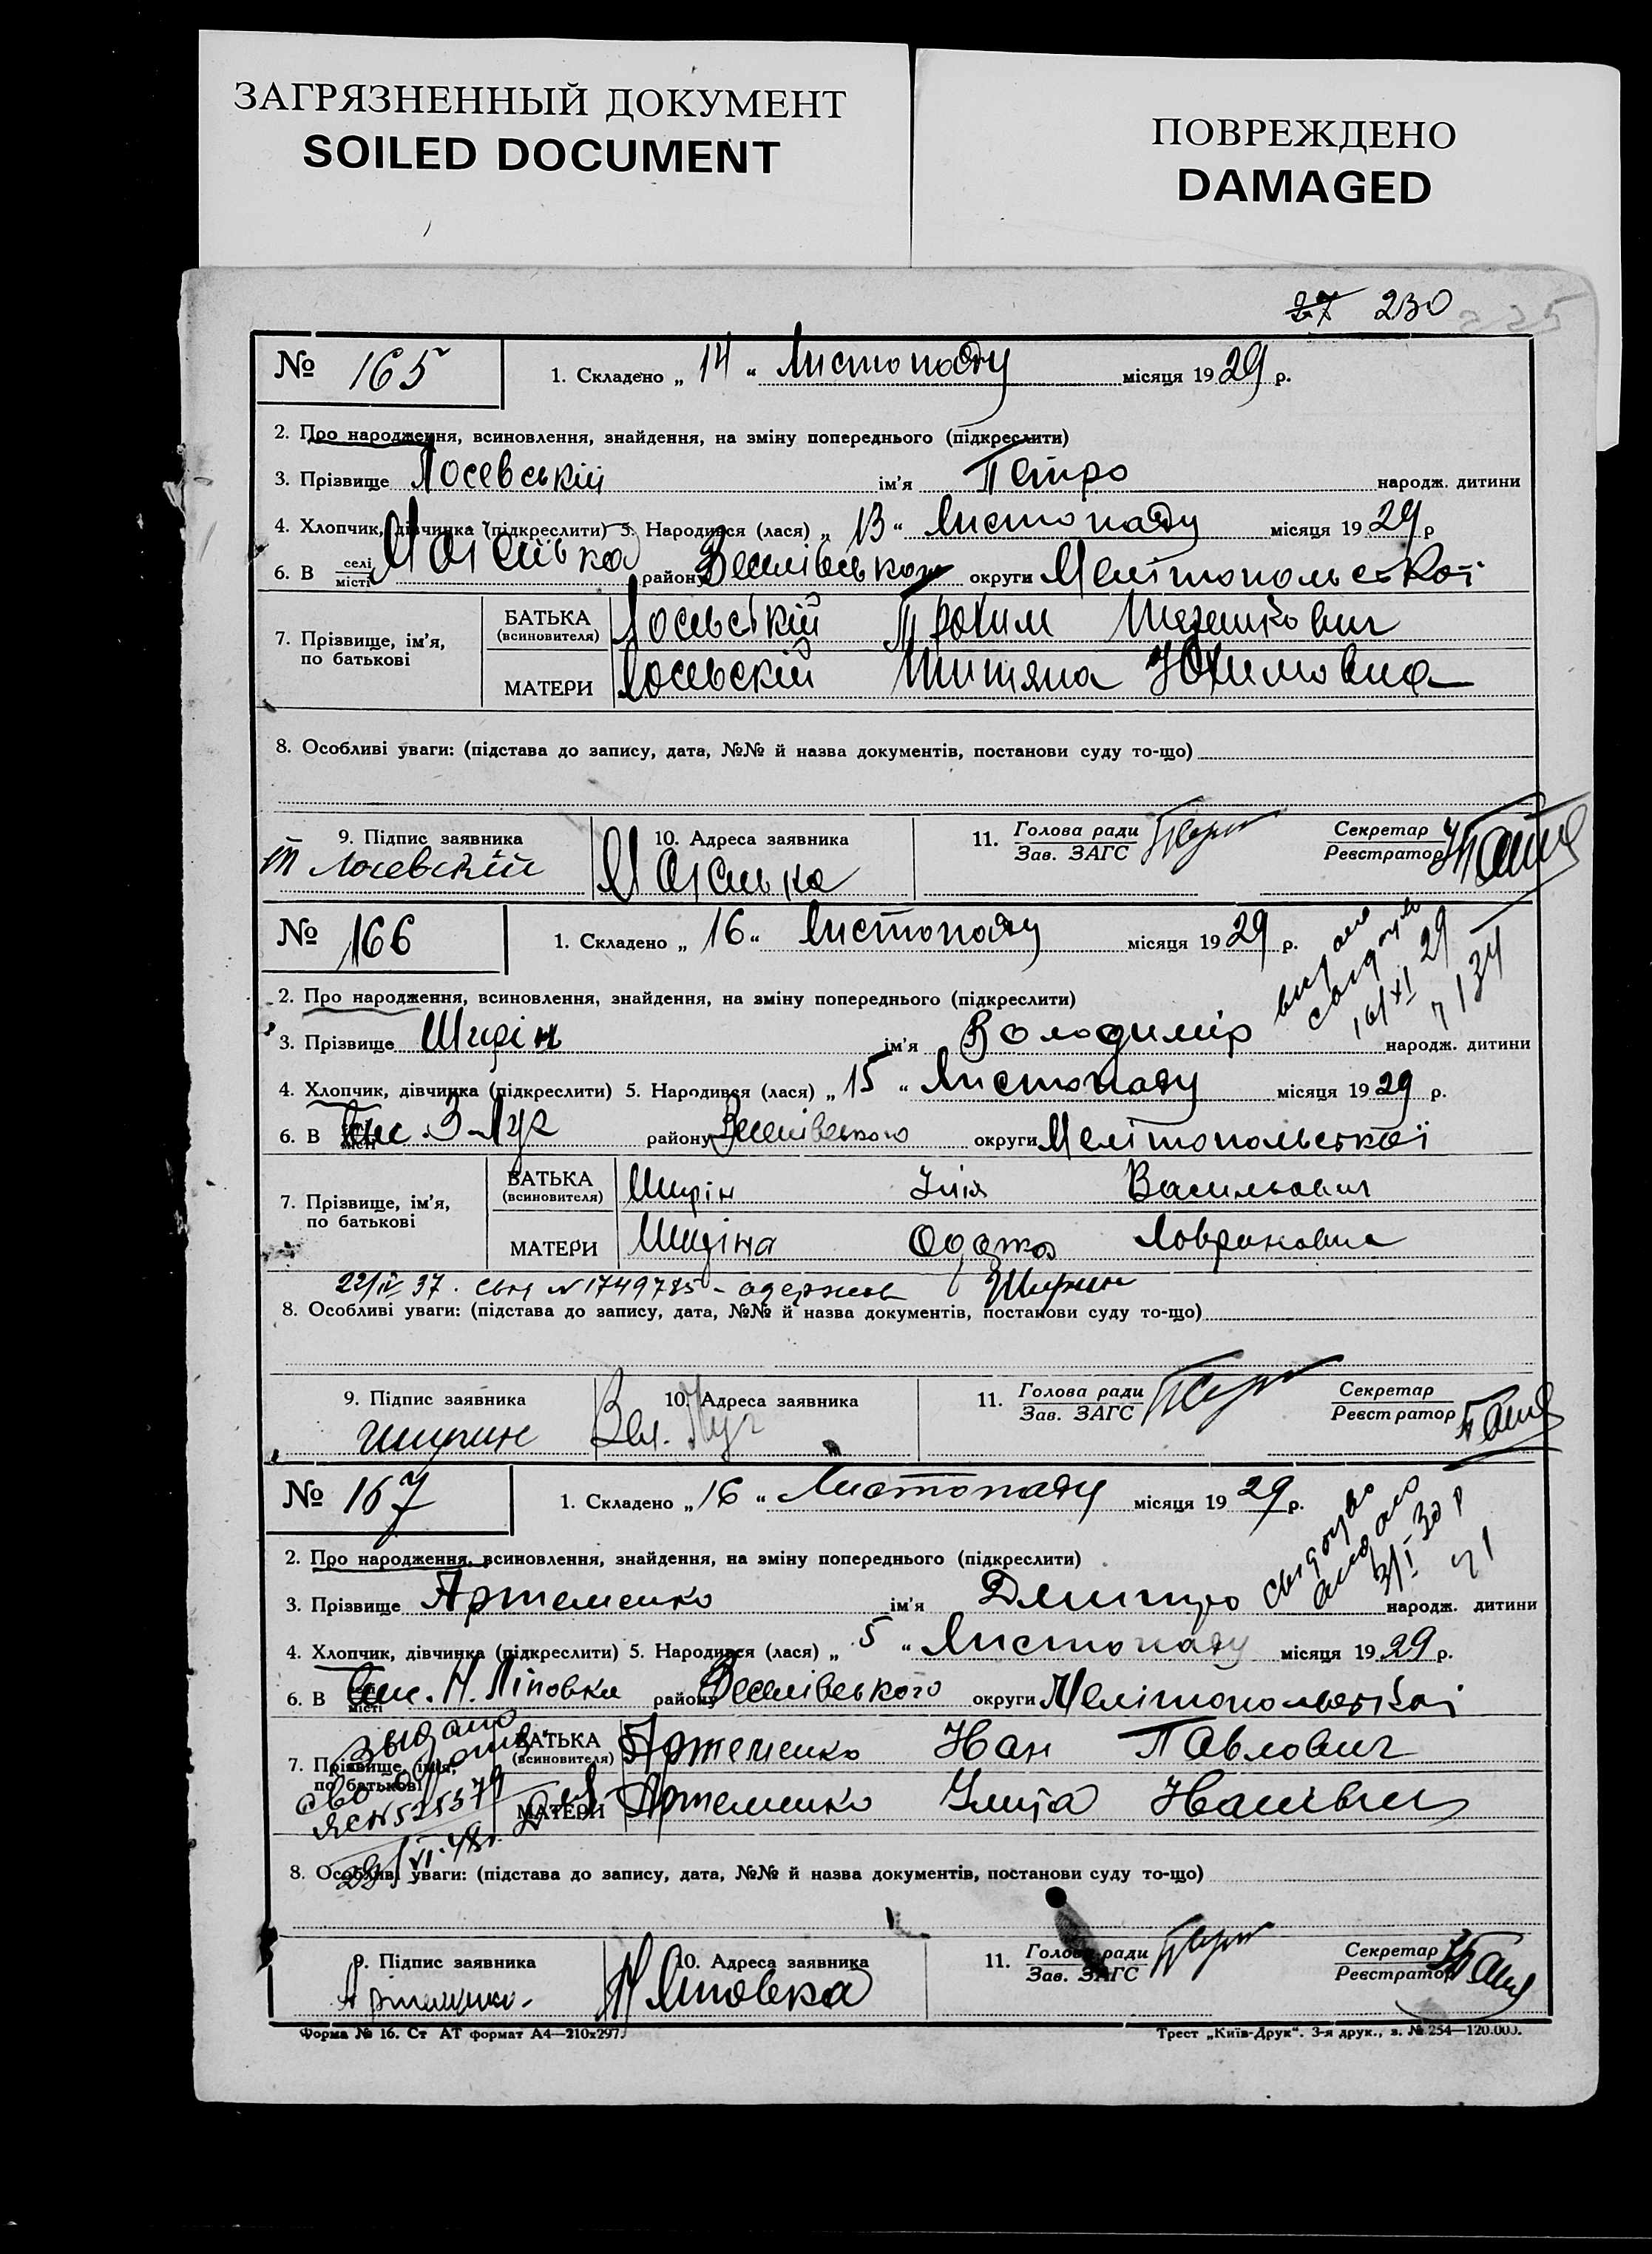 ЗАГРЯЗНЕННЫЙ ДОКУМЕНТ
SOILED DOCUMENT
ПОВРЕЖДЕНО
DAMAGED
27 230
№ 165
1. Складено „ 14 “ Листопаду місяця 1929 р.
2. Про народження, всиновлення, знайдення, на зміну попереднього (підкреслити)
3. Прізвище Лосевській ім'я Петро народж. дитини
4. Хлопчик, дівчинка (підкреслити) 5. Народився (лася) „ 13 “ Листопаду місяця 1929 р
6. В селі місті району Веселівського округи Мелітопольської
7. Прізвище, ім'я, по батькові
БАТЬКА (всиновителя) Лосевській Трохим
МАТЕРИ Лосевскій Юхимовна
8. Особливі уваги: (підстава до запису, дата, №№ й назва документів, постанови суду то-що)
9. Підпис заявника 10. Адреса заявника 11. Голова ради Зав. ЗАГС Секретар Реєстратор
Т Лосевскій
№ 166
1. Складено „ 16 “ Листопаду місяця 1929 р.
16/XI 29
2. Про народження, всиновлення, знайдення, на зміну попереднього (підкреслити)
3. Прізвище Ширін ім'я Володимір народж. дитини
4. Хлопчик, дівчинка (підкреслити) 5. Народився (лася) „ 15 “ Листопаду місяця 1929 р.
6. В місті району Веселівського округи Мелітопольської
7. Прізвище, ім'я, по батькові
БАТЬКА (всиновителя) Ширін Ілія Васильович
МАТЕРИ Ширіна
22/IV 37. свід № 1749785 - одержав Ширин
8. Особливі уваги: (підстава до запису, дата, №№ й назва документів, постанови суду то-що)
9. Підпис заявника 10. Адреса заявника 11. Голова ради Зав. ЗАГС Секретар Реєстратор
Ширин Вел. Луг
№ 167
1. Складено „ 16 “ Листопаду місяця 1929 р.
2. Про народження, всиновлення, знайдення, на зміну попереднього (підкреслити)
3. Прізвище Артеменко ім'я Дмитро народж. дитини
4. Хлопчик, дівчинка (підкреслити) 5. Народився (лася) „ 5 “ Листопаду місяця 1929 р.
6. В місті району Веселівського округи Мелітопольської
7. Прізвище, ім'я, по батькові
БАТЬКА (всиновителя) Артеменко Іван Павлович
МАТЕРИ Артеменко
8. Особливі уваги: (підстава до запису, дата, №№ й назва документів, постанови суду то-що)
9. Підпис заявника 10. Адреса заявника 11. Голова ради Зав. ЗАГС Секретар Реєстратор
Артеменко
Форма № 16. Ст АТ формат А4—210х297.
Трест „Київ-Друк“. 3-я друк., з. № 254—120.000.